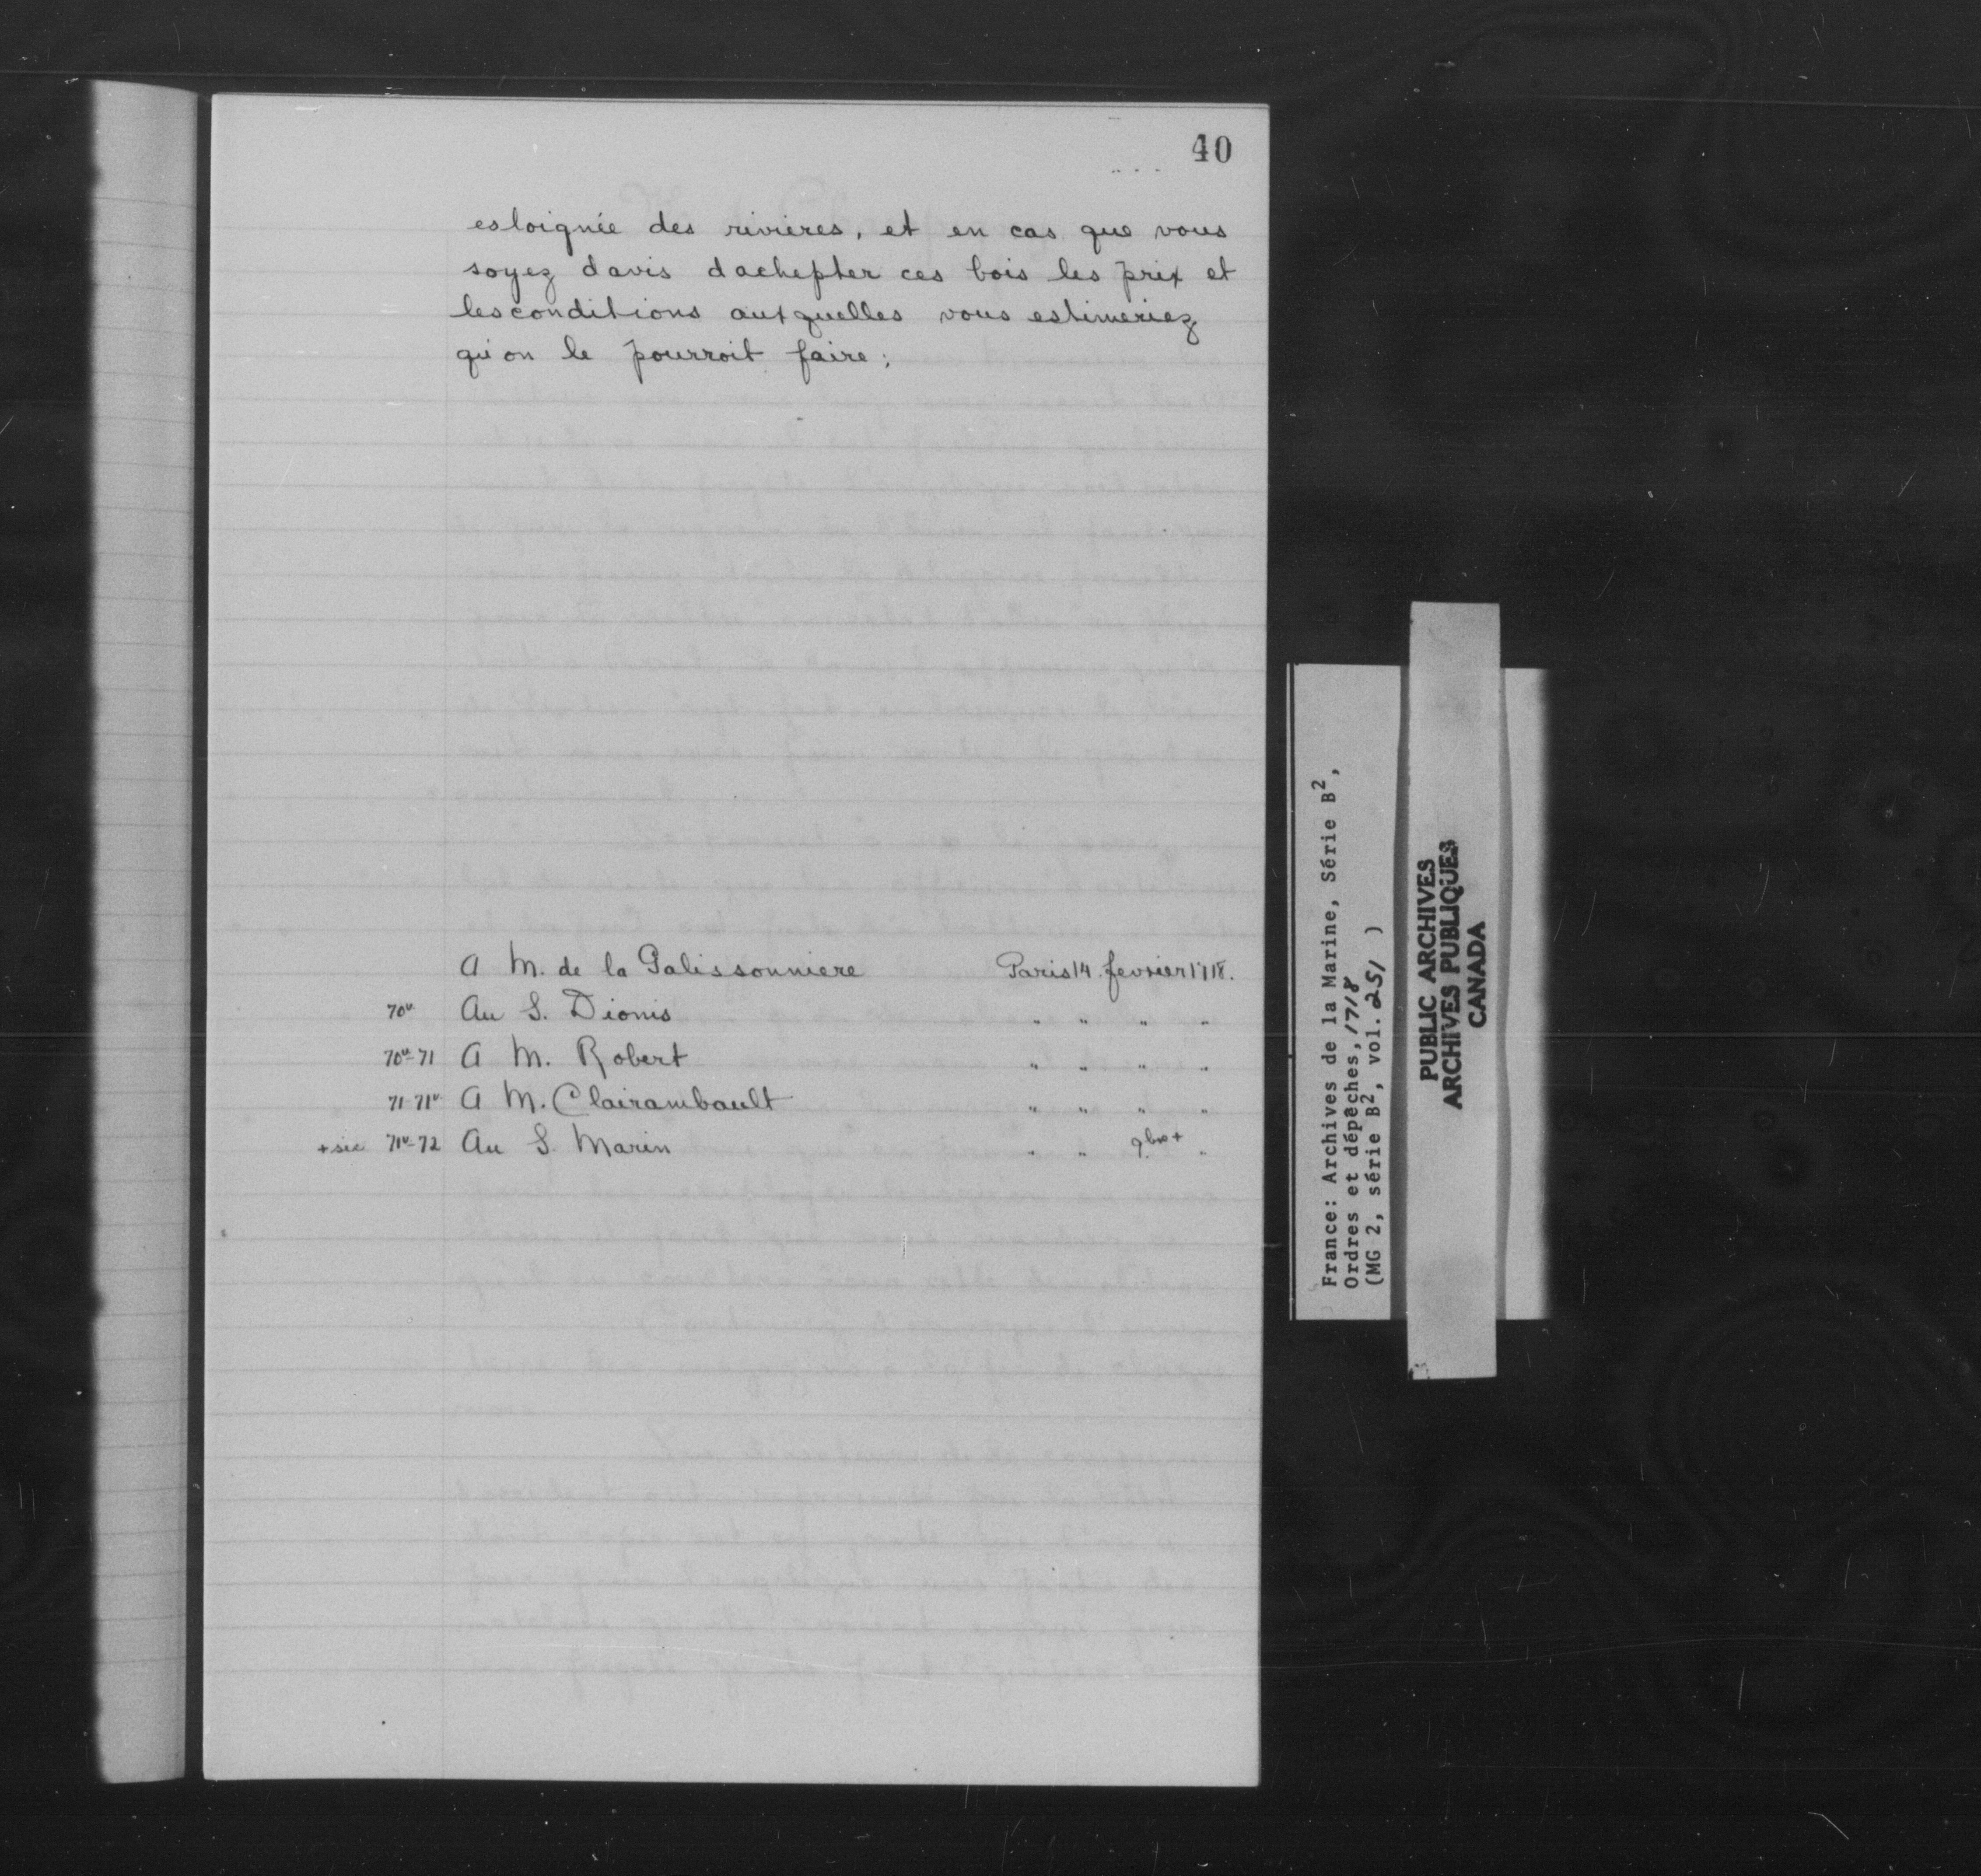 40
esloignée des rivieres, et en cas que vous
soyez davis dachepter ces bois les prix et
les conditions auxquelles vous estimeriez
qu'on le pourroit faire;
A M. de la Galissonniere Paris 14 fevrier 1718.
70v Au S. Dionis " " " "
70v-71 A M. Robert " " " "
71-71v A M. Clairambault " " " "
+sic 71v-72 Au S. Marin " " 9bre+ "
France: Archives de la Marine, Série B2,
Ordres et dépêches, 1718
(MG 2, série B2, vol. 251 )
PUBLIC ARCHIVES
ARCHIVES PUBLIQUES
CANADA